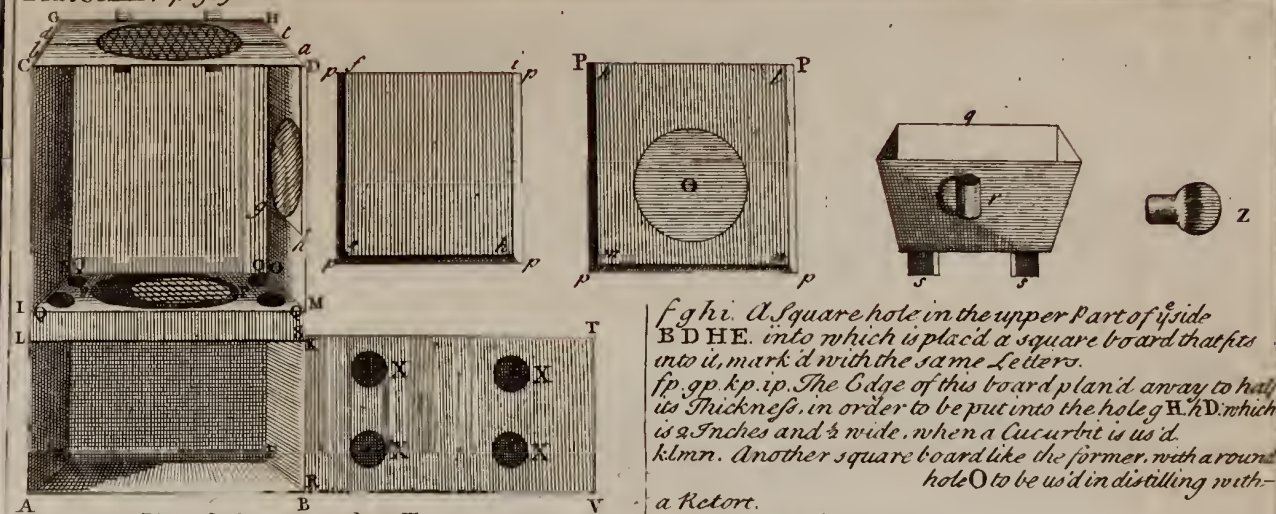 G H
d c
b a
C D P f i p P k l P q
O
g r Z
h
g k m n
N Y O O p p p p s s
I Q Q M
L S K T
X X
X X
E F
R
A B V
f g h i. A Square hole in the upper Part of yͤ side
B D H E. into which is plac'd a square board that fits
into it, mark'd with the same Letters.
fp. gp. kp. ip. The Edge of this board plan'd away to half
its Thickness, in order to be put into the hole g H. h D. which
is 2 Inches and ½ wide, when a Cucurbit is us'd.
klmn. Another square board like the former, with a round
hole O to be us'd in distilling with-
a Retort.